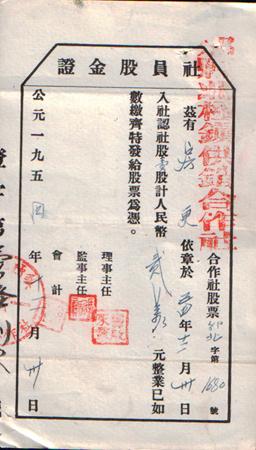 社員股金證
鎮供銷合作社
合作社股票 字第1680號
茲有 更 依章於 年十二月卅日
入社認社股壹股計人民幣 貳萬 元整業已如
數繳齊特發給股票為憑。
理事主任
監事主任
會計
公元一九五四年十二月卅日